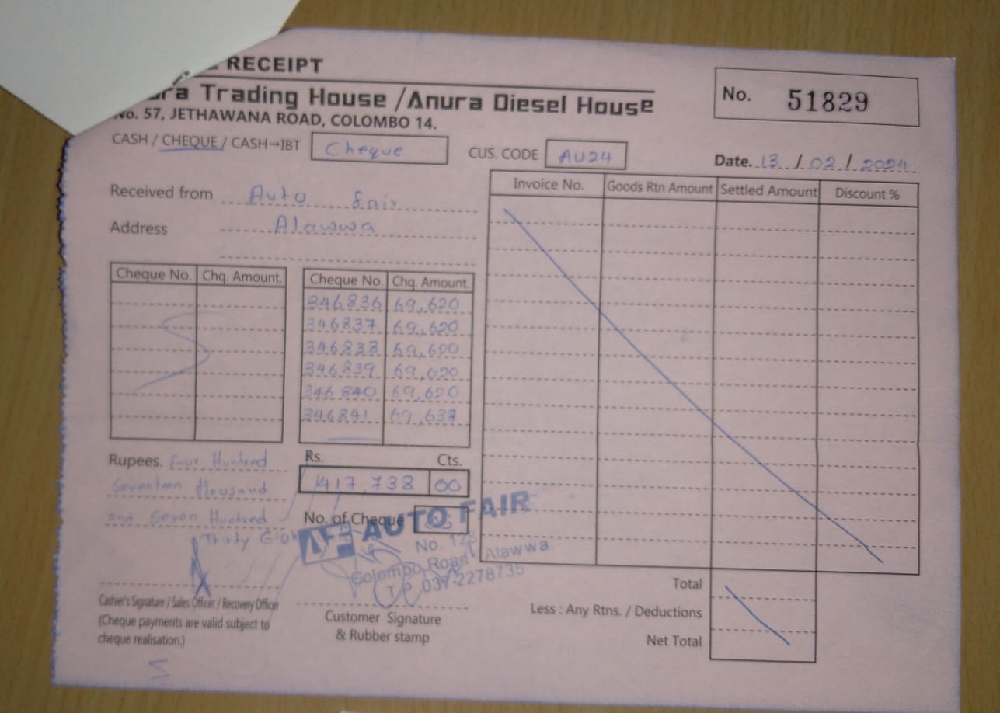 RECEIPT
ra Trading House / Anura Diesel House
No. 57, JETHAWANA ROAD, COLOMBO 14.
No. 51829
CASH / CHEQUE / CASH→IBT Cheque
CUS. CODE AU24
Date. 13 / 02 / 2024
Received from Auto Fair
Address Alawwa
Invoice No. Goods Rtn Amount Settled Amount Discount %
Cheque No. Chq. Amount.
Cheque No. Chq. Amount.
346836 69,620
346837 69,620
346838 69,620
346839 69,620
346840 69,620
346841 69,638
Rupees. Four Hundred
Seventeen thousand
and Seven Hundred
Thirty Eight
Rs. Cts.
417,738 00
No. of Cheque
AUTO FAIR
Colombo Road, Alawwa
T.P. 037-2278735
Cashier's Signature / Sales Officer / Recovery Officer
(Cheque payments are valid subject to
cheque realisation.)
Customer Signature
& Rubber stamp
Total
Less : Any Rtns. / Deductions
Net Total